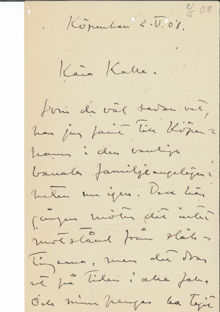 2/5 08
Köpenhamn 2.V.08.
Kära Kalle.
Som du väl redan vet,
har jag farit till Köpen-
hamn i den vanliga
banala familjeangelägen-
heten nu igen. Denna
gången möter det intet
motstånd från släk-
tingarna, men det drar
ut på tiden i alla fall.
Och mina pengar ha tagit